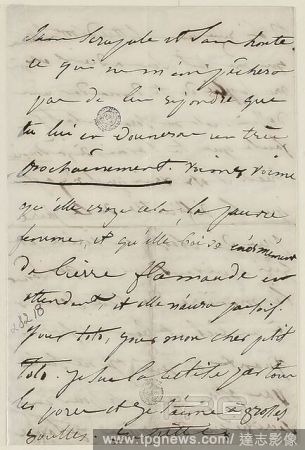 sans scrupule et sans honte
ce qui ne m'empêchera
pas de lui répondre que
tu lui en donneras un très
prochainement. vaimez vaime
qu'elle croye cela, la pauvre
femme, et qu'elle boive énormément
de bierre flamande en
attendant, et elle n'aura pas soif.
Jour toto, jour mon cher petit
toto. je suis la bêtise par tous
les pores et je t'aime à grosses
gouttes.
282 18
www.tpgnews.com / 達志影像